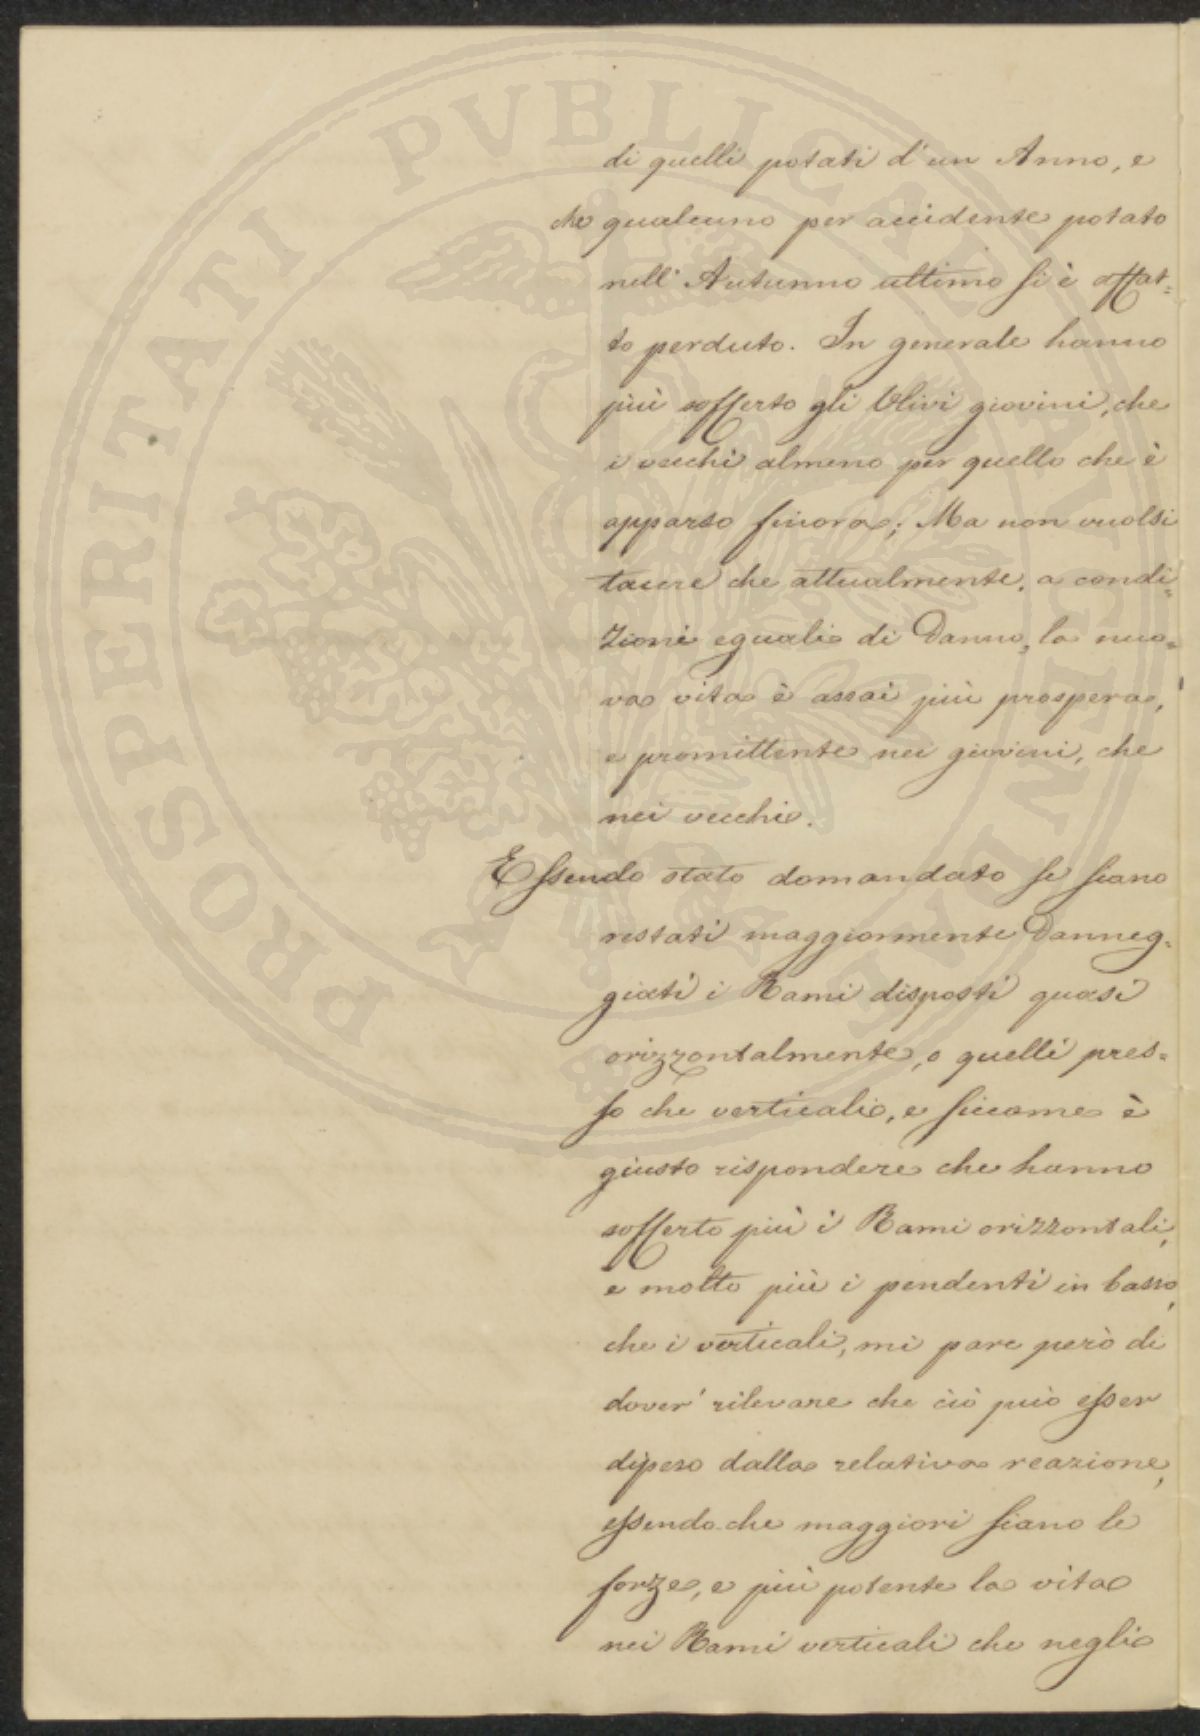 PROSPERITATI PVBLICAE AVGENDAE
di quelli potati d'un Anno, e
che qualcuno per accidente potato
nell'Autunno ultimo si è affat=
to perduto. In generale hanno
più sofferto gli Ulivi giovini, che
i vecchi almeno per quello che è
apparso finora; Ma non vuolsi
tacere che attualmente, a condi=
zioni eguali di Danno, la nuo=
va vita è assai più prospera,
e promittente nei giovini, che
nei vecchi.
Essendo stato domandato se siano
restati maggiormente Danneg=
giati i Rami disposti quasi
orizzontalmente, o quelli pres=
so che verticali, e siccome è
giusto rispondere che hanno
sofferto più i Rami orizzontali,
e molto più i pendenti in basso,
che i verticali, mi pare però di
dover' rilevare che ciò può esser
dipeso dalla relativa reazione,
essendo che maggiori siano le
forze, e più potente la vita
nei Rami verticali che negli